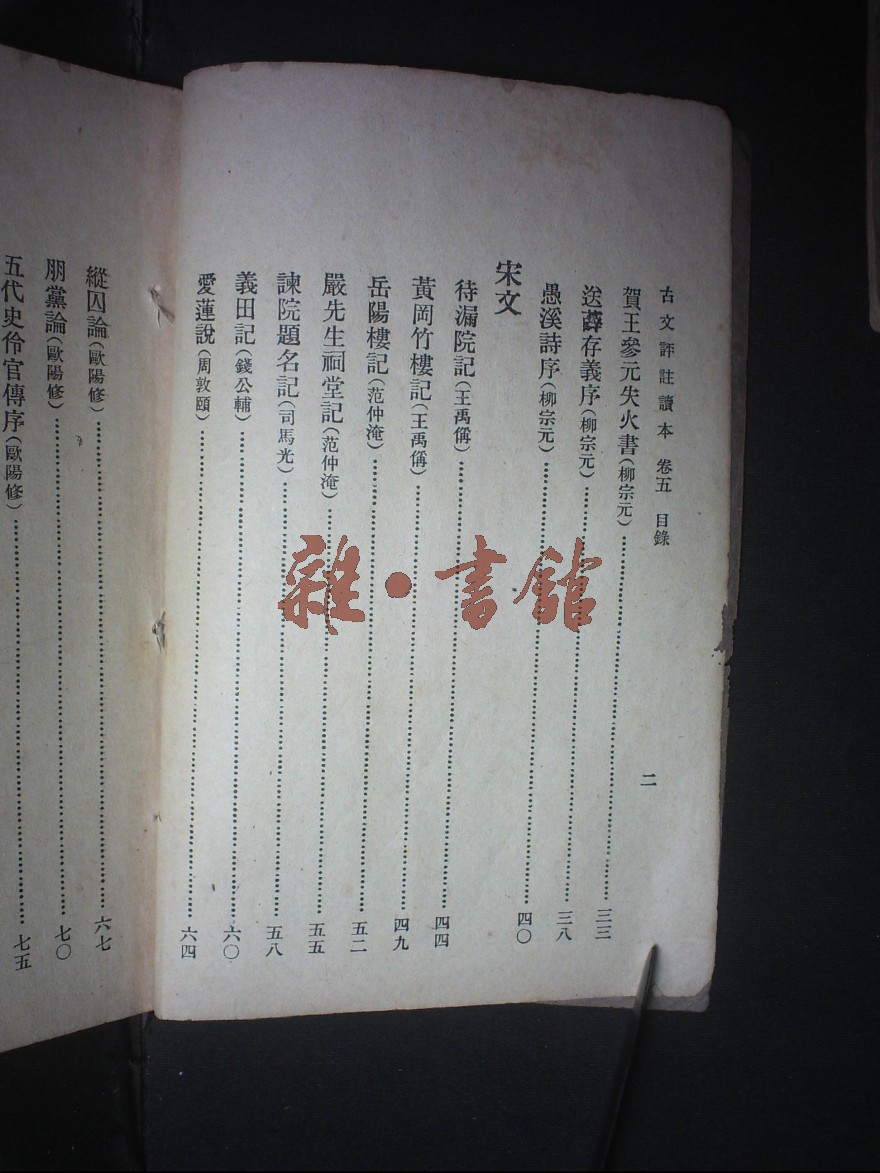 古文評註讀本 卷五 目錄 二
賀王參元失火書(柳宗元)……三三
送薛存義序(柳宗元)……三八
愚溪詩序(柳宗元)……四〇
宋文
待漏院記(王禹偁)……四四
黃岡竹樓記(王禹偁)……四九
岳陽樓記(范仲淹)……五二
嚴先生祠堂記(范仲淹)……五五
諫院題名記(司馬光)……五八
義田記(錢公輔)……六〇
愛蓮說(周敦頤)……六四
縱囚論(歐陽修)……六七
朋黨論(歐陽修)……七〇
五代史伶官傳序(歐陽修)……七五
雜·書館